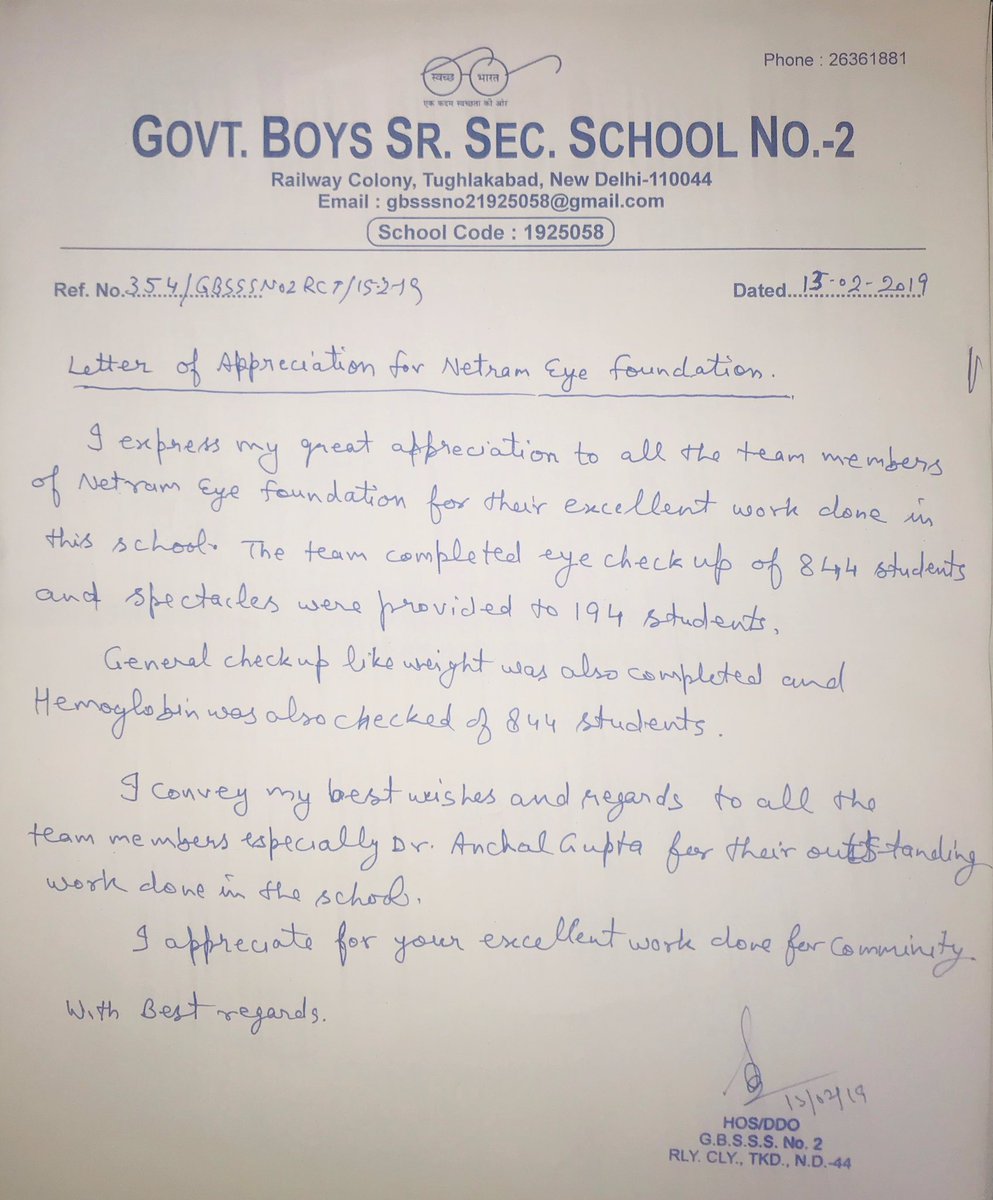 Phone : 26361881
स्वच्छ भारत
एक कदम स्वच्छता की ओर
GOVT. BOYS SR. SEC. SCHOOL NO.-2
Railway Colony, Tughlakabad, New Delhi-110044
Email : gbsssno21925058@gmail.com
School Code : 1925058
Ref. No. 354/GBSSSNo2 RCT/15-2-19 Dated 15-02-2019
Letter of Appreciation for Netram Eye Foundation.
I express my great appreciation to all the team members
of Netram Eye Foundation for their excellent work done in
this school. The team completed eye check up of 844 students
and spectacles were provided to 194 students.
General check up like weight was also completed and
Hemoglobin was also checked of 844 students.
I convey my best wishes and regards to all the
team members especially Dr. Anchal Gupta for their outstanding
work done in the school.
I appreciate for your excellent work done for Comminity.
With Best regards.
15/02/19
HOS/DDO
G.B.S.S.S. No. 2
RLY. CLY., TKD., N.D.-44